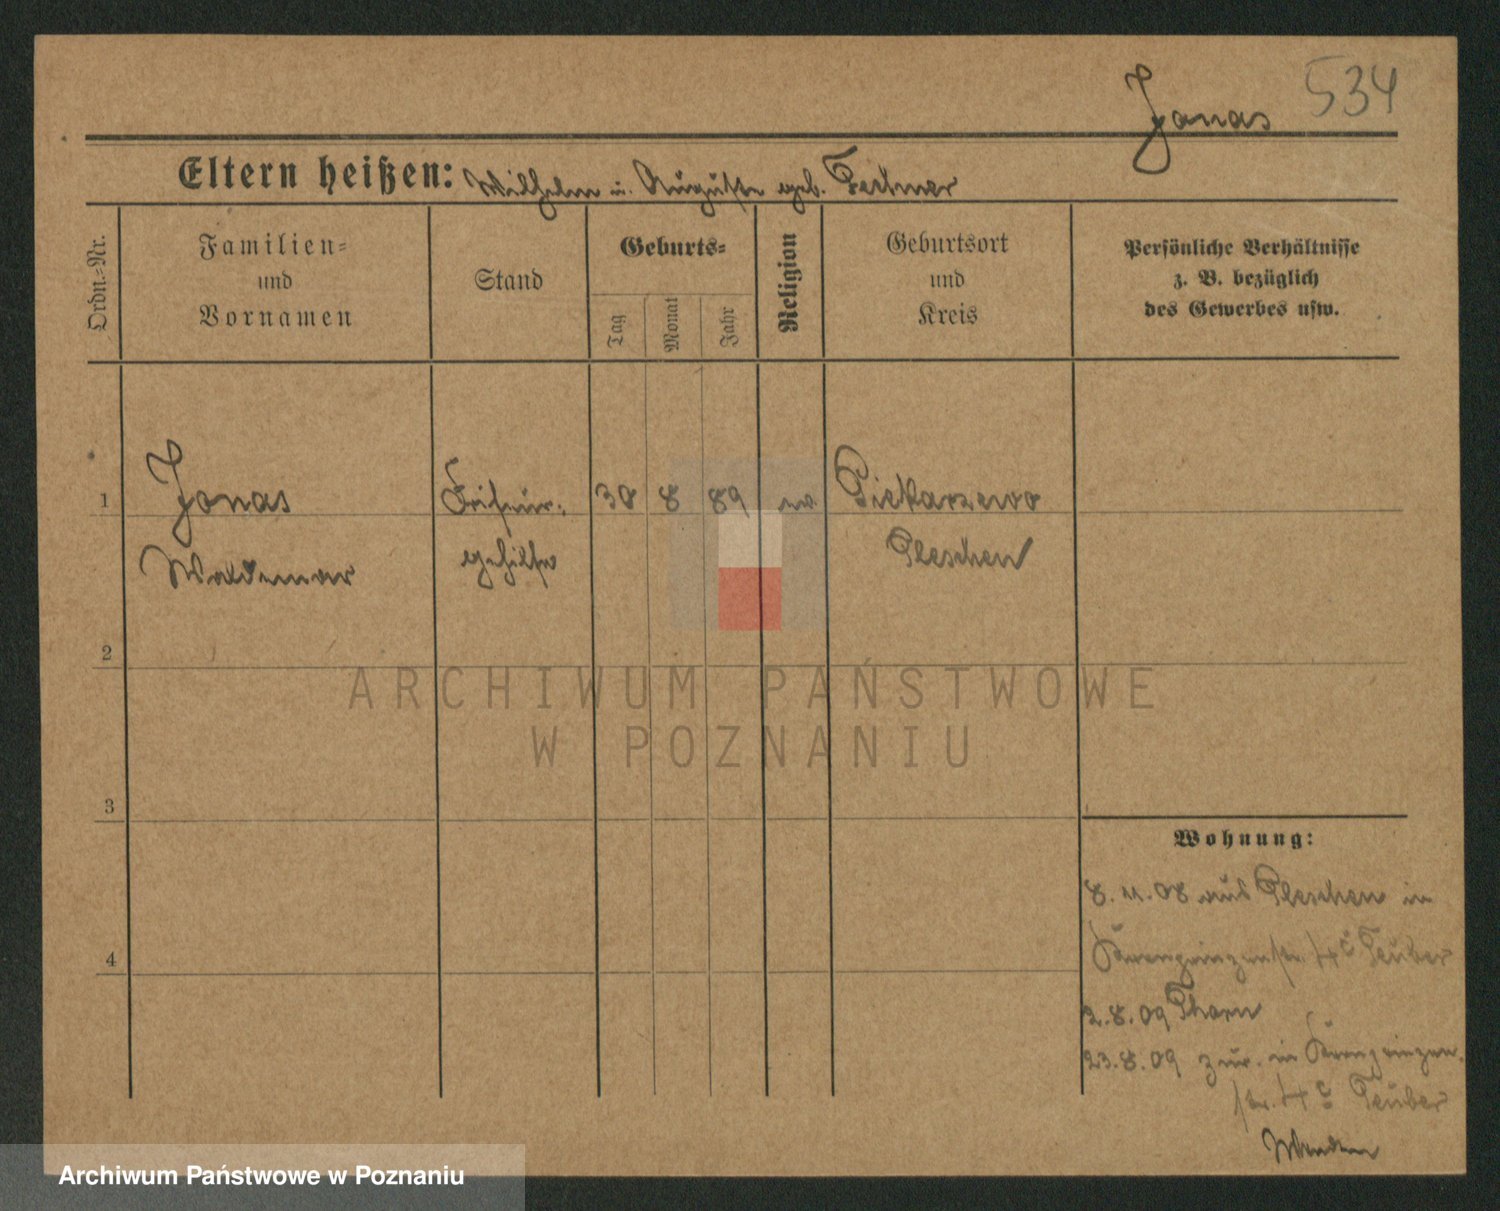 Jonas 534
Eltern heißen: Wilhelm u. Auguste geb.
Ordn.=Nr.
Familien=
und
Vornamen
Stand
Geburts=
Tag
Monat
Jahr
Religion
Geburtsort
und
Kreis
Persönliche Verhältnisse
z. B. bezüglich
des Gewerbes usw.
1 Jonas Friseur- 30 8 89 ev Piekarzewo
Waldemar gehilfe Pleschen
2
3
4
Wohnung:
8.11.08 aus Pleschen in
Kronprinzenstr. 4 c Teuber
2.8.09 Thorn
23.8.09 zur. in Kronprinzen
str. 4 c Teuber
ARCHIWUM PAŃSTWOWE
W POZNANIU
Archiwum Państwowe w Poznaniu